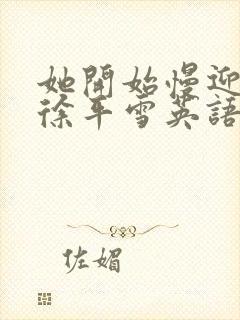 她開始慢迎
徐平雪英語
佐媚